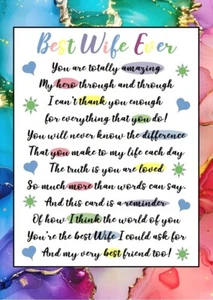 Best Wife Ever
You are totally amazing
My hero through and through
I can't thank you enough
for everything that you do!
You will never know the difference
That you make to my life each day
The truth is you are loved
So much more than words can say.
And this card is a reminder
Of how I think the world of you
You're the best Wife I could ask for
And my very best friend too!